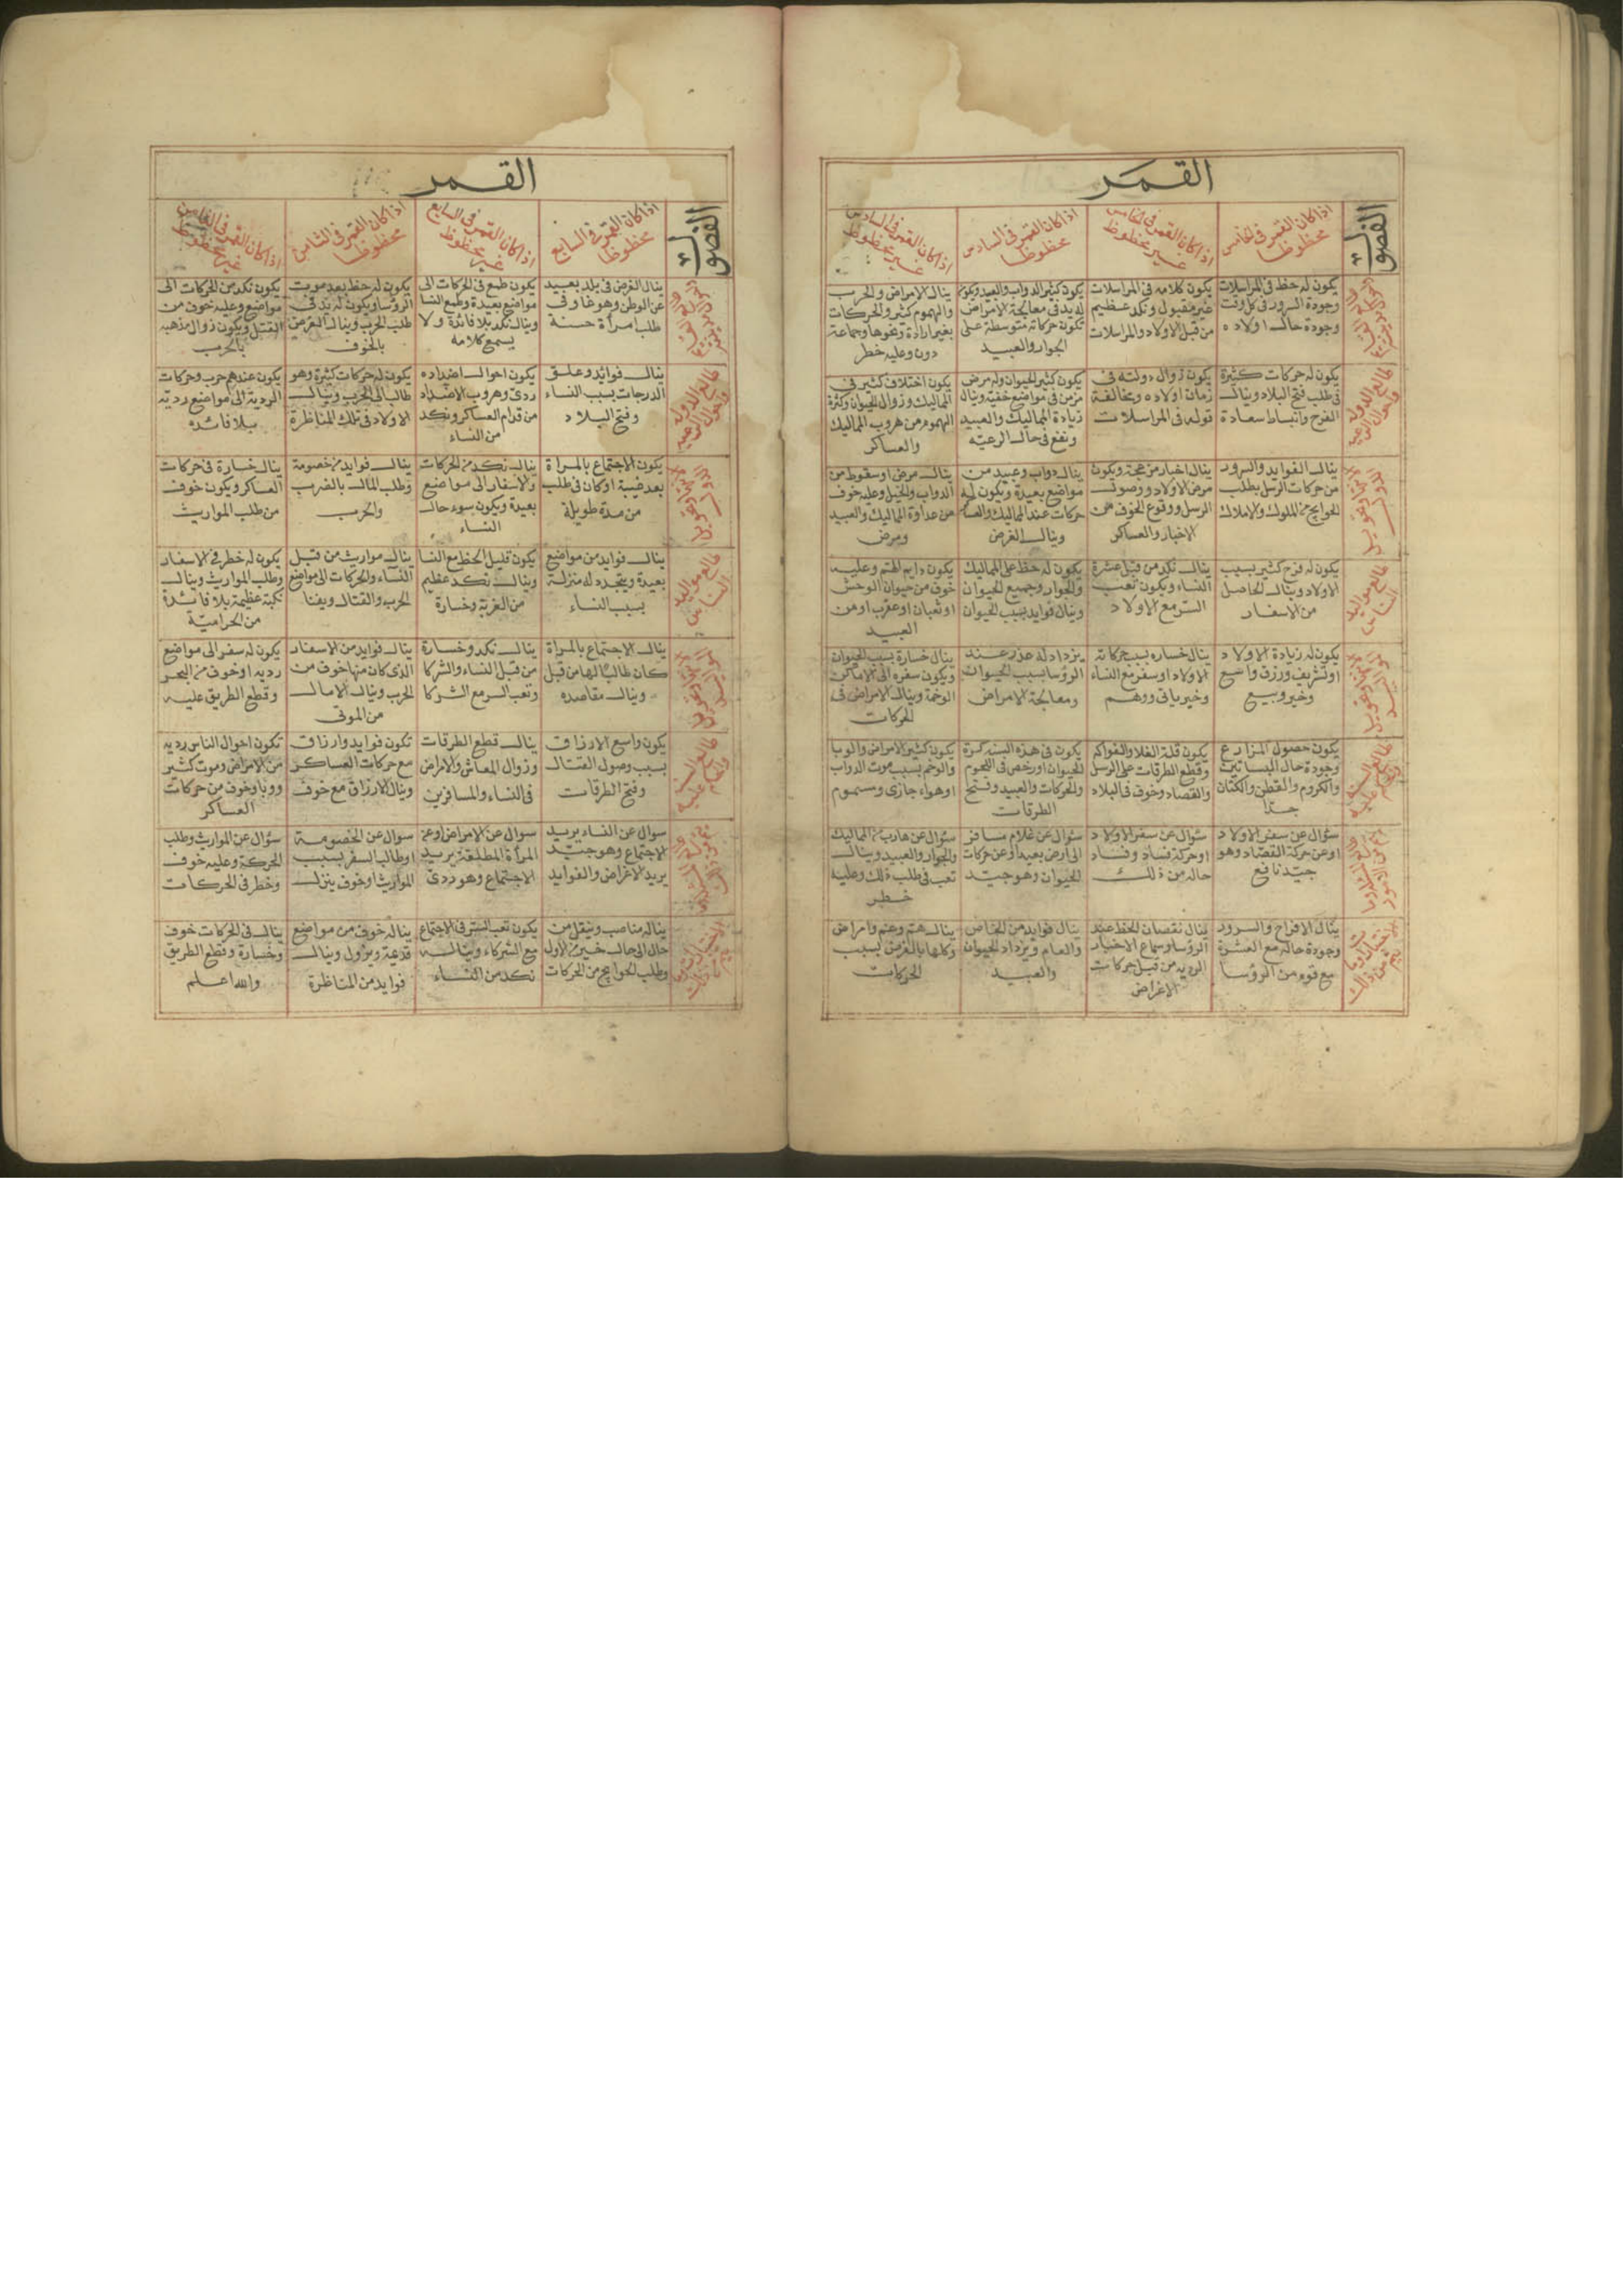 القمر
الفصول
اذا كان القمر في الخامس
محظوظا
اذا كان القمر في الخامس
غير محظوظ
اذا كان القمر في السادس
محظوظا
اذا كان القمر في السادس
غير محظوظ
يكون له حظ في المراسلات
وجودة السرور في كل وقت
وجودة حال اولاده
يكون كلامه في المراسلات
غير مقبول ونكد عظيم
من قبل الاولاد والمراسلات
يكون كثير الدواب والعبيد ويكون
له يد في معالجة الامراض
تكون حركاته متوسطة على
الجوار والعبيد
ينال الامراض والحرب
والهموم كثير والحركات
بغير ارادة ونحوها وجماعة
دون وعليه خطر
طالع الدولة
واحوال الرعية
يكون له حركات كثيرة
في طلب فتح البلاد وينال
الفرح وانبساط سعادة
يكون زوال دولته في
زمان اولاده ومخالفة
قوله في المراسلات
يكون كثير الحيوان وله مرض
مزمن في مواضع خفية وينال
زيادة المماليك والعبيد
ونفع في حال الرعيه
يكون اختلاف كثير في
المماليك وزوال الحيوان وكثرة
الهموم من هروب المماليك
والعساكر
ينال الفوايد والسرور
من حركات الرسل بطلب
الحوايج من الملوك والاملاك
ينال اخبار مزعجة ويكون
مرض الاولاد ووصول
الرسل ووقوع الخوف من
الاخبار والعساكر
ينال دواب وعبيد من
مواضع بعيدة ويكون له
حركات عند المماليك والعساكر
وينال الغرض
ينال مرض او سقوط من
الدواب والخيل وعليه خوف
من عداوة المماليك والعبيد
ومرض
طالع مواليد
الناس
يكون له فرح كثير بسبب
الاولاد وينال الحاصل
من الاسفار
ينال نكد من قبل عشرة
النساء ويكون تعب
السر مع الاولاد
يكون له حظ على المماليك
والجوار وجميع الحيوان
وينال فوايد بسبب الحيوان
يكون دايم الهم وعليه
خوف من حيوان الوحش
او ثعبان او عقرب او من
العبيد
يكون له زيادة الاولاد
او تشريف ورزق واسع
وخير وبيع
ينال خساره بسبب حركاته
الاولاد او سفر مع النساء
وخير ياتي ووهم
يزداد له عذر عند
الرؤسا بسبب الحيوان
ومعالجة الامراض
ينال خسارة بسبب الحيوان
ويكون سفره الى الاماكن
الوخمة وينال الامراض في
الحركات
يكون حصول المزارع
وجودة حال البساتين
والكروم والقطن والكتان
جدا
يكون قلة الغلا والفواكه
وقطع الطرقات على الرسل
والقصاد وخوف في البلاد
يكون في هذه السنه كثرة
الحيوان ورخص في اللحوم
والحركات والعبيد وفتح
الطرقات
يكون كثير الامراض والوبا
والوخم بسبب موت الدواب
وهواء جازي وسموم
سؤال عن سفر الاولاد
او عن حركة القصاد وهو
جيد نافع
سؤال عن سفر الاولاد
او حركة فساد وفساد
حاله من ذلك
سؤال عن غلام مسافر
الى ارض بعيدة او عن حركات
الحيوان وهو جيد
سؤال عن هارب من المماليك
والجوار والعبيد وينال
تعب في طلب ذلك وعليه
خطر
ينال الافراح والسرور
وجودة حاله مع العشرة
مع قوم من الرؤسا
ينال نقصان الحظ عند
الرؤسا وسماع الاخبار
الرديه من قبل حركات
الاغراض
ينال فوايد من الخاص
والعام ويزداد الحيوان
والعبيد
ينال هم وغم وامراض
وكلها بالغرض بسبب
الحركات
القمر
الفصول
اذا كان القمر في السابع
محظوظا
اذا كان القمر في السابع
غير محظوظ
اذا كان القمر في الثامن
محظوظا
اذا كان القمر في الثامن
غير محظوظ
ينال الغرض في بلد بعيد
عن الوطن وهو غاو في
طلب امرأة حسنة
يكون طمع في الحركات الى
مواضع بعيدة وطمع النسا
وينال نكد بلا فائدة ولا
يسمع كلامه
يكون له حظ بعد موت
الرؤسا ويكون له يد في
طلب الحرب وينال الغرض
بالخوف
يكون نكد من الحركات الى
مواضع وعليه خوف من
القتل ويكون زوال مذهبه
بالحرب
طالع الدولة
واحوال الرعيه
ينال فوايد وعلو
الدرجات بسبب النساء
وفتح البلاد
يكون احوال اضداده
ردئ وهروب الاضداد
من قدام العساكر ونكد
من النساء
يكون له حركات كثيرة وهو
طالب الى الحرب وينال
الاولاد في تلك المناظرة
يكون عندهم حرب وحركات
الردية الى مواضع رديه
بلا فائده
يكون الاجتماع بالمراة
بعد غيبة او كان في طلب
من مدة طويلة
ينال نكد من الحركات
والاسفار الى مواضع
بعيدة ويكون سوء حال
النساء
ينال فوايد من خصومة
وطلب المال بالضرب
والحرب
ينال خسارة في حركات
العساكر ويكون خوف
من طلب المواريث
طالع مواليد
الناس
ينال فوايد من مواضع
بعيدة ويتجدد له منزلة
بسبب النساء
يكون قليل الحظ مع النسا
وينال نكد عظيم
من الغربة وخسارة
ينال مواريث من قبل
النساء والحركات الى مواضع
الحرب والقتال ويفنا
يكون له خطر في الاسفار
وطلب المواريث وينال
نكبة عظيمة بلا فائدة
من الحرامية
ينال الاجتماع بالمراة
كان طالبا لها من قبل
وينال مقاصده
ينال نكد وخسارة
من قبل النساء والشركا
وتعب السر مع الشركا
ينال فوايد من الاسفار
الذي كان منها خوف من
الحرب وينال الامال
من الموتى
يكون له سفر الى مواضع
رديه او خوف من البحر
وقطع الطريق عليه
يكون واسع الارزاق
بسبب وصول القتال
وفتح الطرقات
ينال قطع الطرقات
وزوال المعاش والامراض
في النساء والمسافرين
تكون فوايد وارزاق
مع حركات العساكر
وينال الارزاق مع خوف
تكون احوال الناس رديه
من الامراض وموت كثير
ووبا وخوف من حركات
العساكر
سوال عن النساء يريد
الاجتماع وهو جيد
يريد الاغراض والفوايد
سوال عن الامراض او عن
المرأة المطلقة يريد
الاجتماع وهو ردئ
سوال عن الخصومة
او طالب السفر بسبب
المواريث او خوف ينزل
سؤال عن المواريث وطلب
الحركة وعليه خوف
وخطر في الحركات
يناله مناصب وينقل من
حال الى حال خير من الاول
وطلب الحوايج من الحركات
يكون تعب السر في الاجتماع
مع الشركاء وينال
نكد من النساء
يناله خوف من مواضع
قديمة ويزول وينال
فوايد من المناظرة
ينال في الحركات خوف
وخسارة وقطع الطريق
والله اعلم